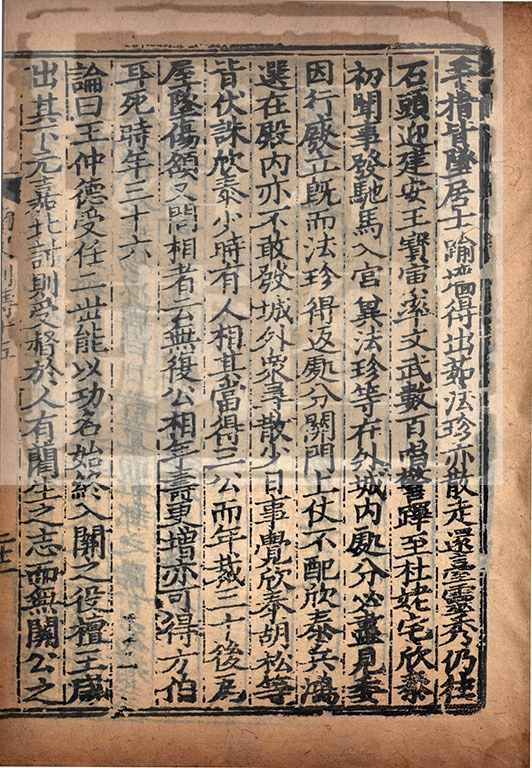 手指皆墜居士踰墻得出茹法珍亦散走還臺靈秀仍往
石頭迎建安王寶寅率文武數百唱警蹕至杜姥宅欣㤗
初聞事發馳馬入宮冀法珍等在外城內處分必盡見委
因行廢立旣而法珍得返處分關門上仗不配欣泰兵鴻
選在殿內亦不敢發城外衆尋散少日事覺欣泰胡松等
皆伏誅欣泰少時有人相其當得三公而年裁三十後爲
屋墜傷額又問相者云無復公相年壽更增亦可得方伯
耳死時年三十六
論曰王仲德受任二世能以功名始終入關之役檀王咸
出其下元嘉北討則受督於人有閫生之志而無關公之